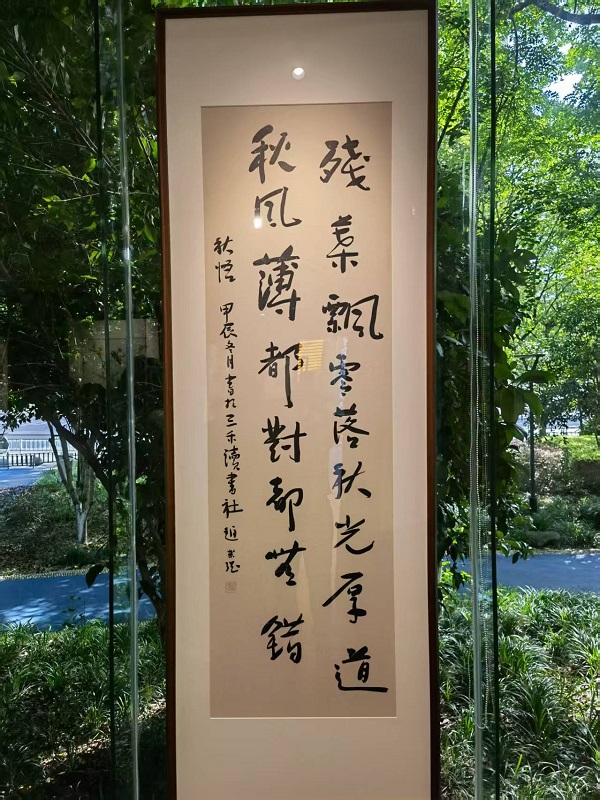 殘葉飄零落秋光厚道
秋風薄都對都無錯
秋悟 甲辰冬月書於三禾讀書社 趙